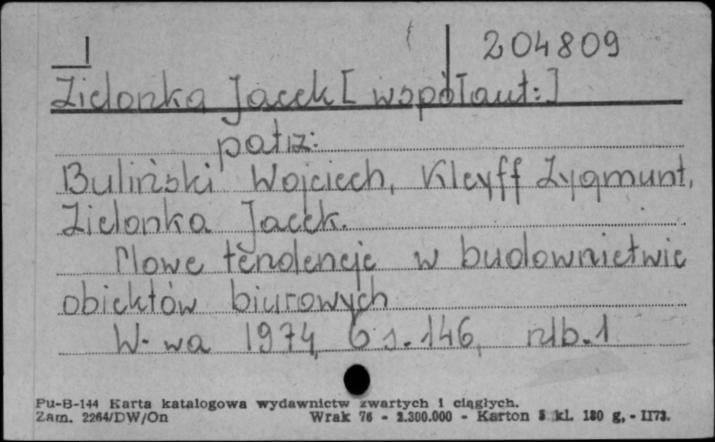 204809
Zielonka Jacek [współaut:]
patrz:
Buliński Wojciech, Kleyff Zygmunt,
Zielonka Jacek.
Nowe tendencje w budownictwie
obiektów biurowych
W-wa 1974, s. 146, nlb. 1
Pu-B-144 Karta katalogowa wydawnictw zwartych i ciągłych.
Zam. 2264/DW/On Wrak 76 - 2.300.000 - Karton kl. 180 g, - II73.